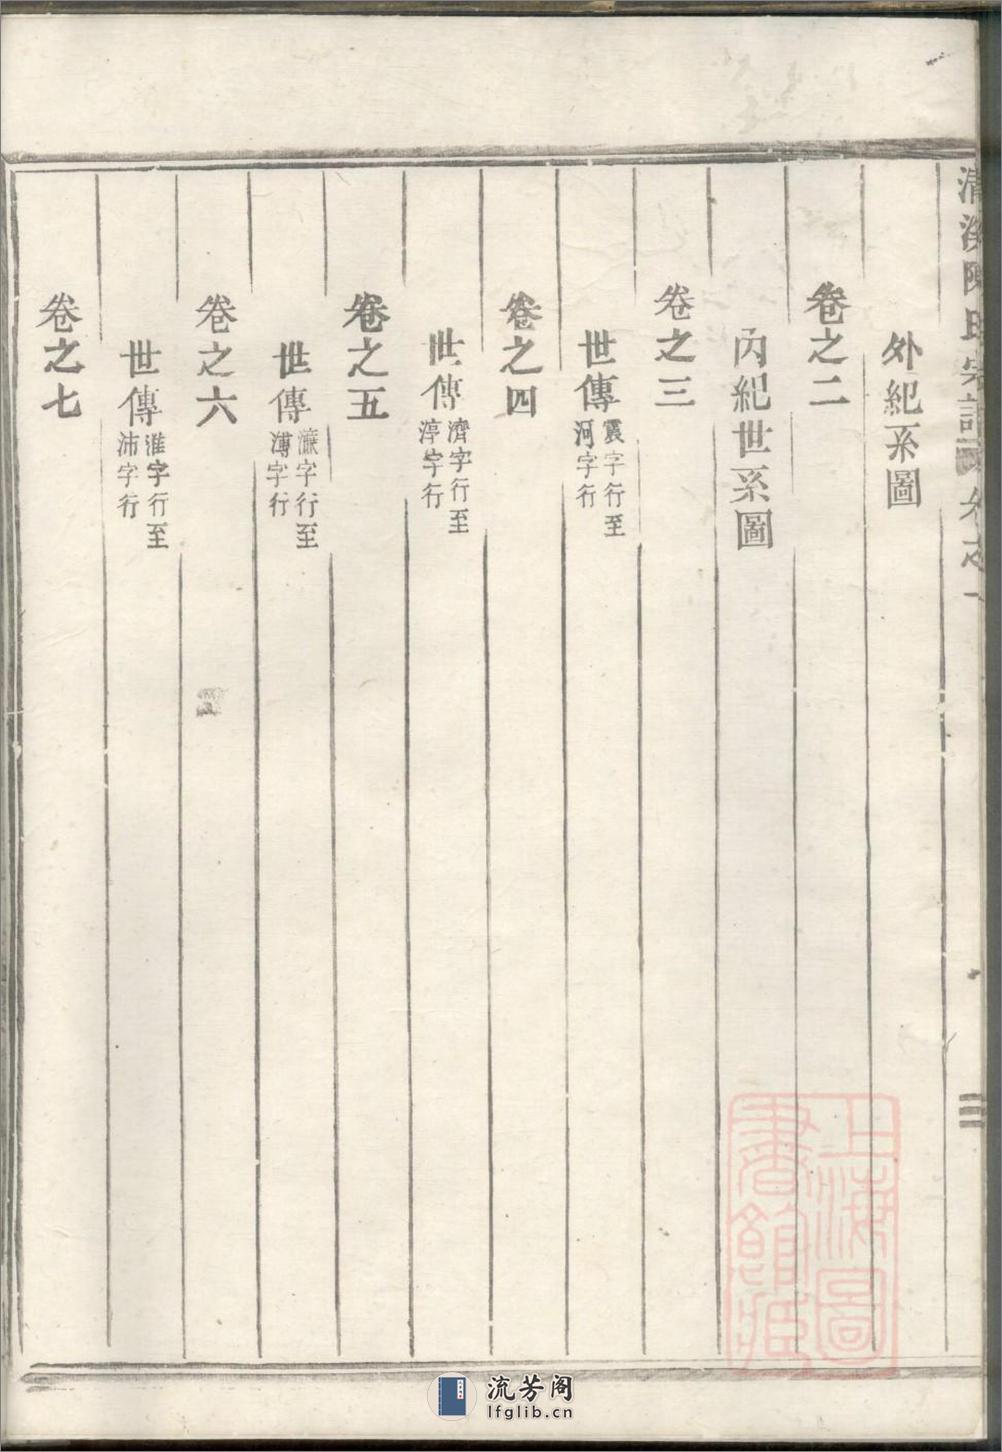 清溪陳氏宗譜 卷之一
三
外紀系圖
卷之二
內紀世系圖
卷之三
世傳 震字行至河字行
卷之四
世傳 濟字行至淳字行
卷之五
世傳 濂字行至溥字行
卷之六
世傳 淮字行至沛字行
卷之七
上海圖書館藏
流芳阁
lfglib.cn